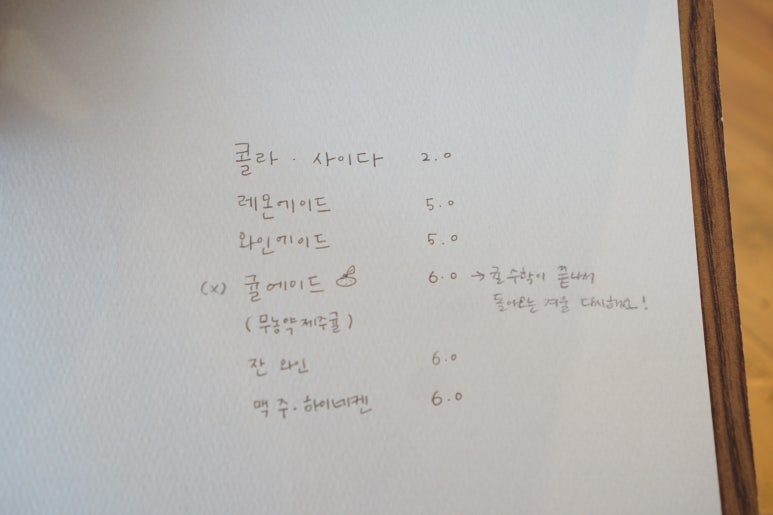 콜라 · 사이다 2.0
레몬에이드 5.0
와인에이드 5.0
(x) 귤에이드 6.0 → 귤 수확이 끝나서
돌아오는 겨울 다시해요!
(무농약제주귤)
잔 와인 6.0
맥주·하이네켄 6.0